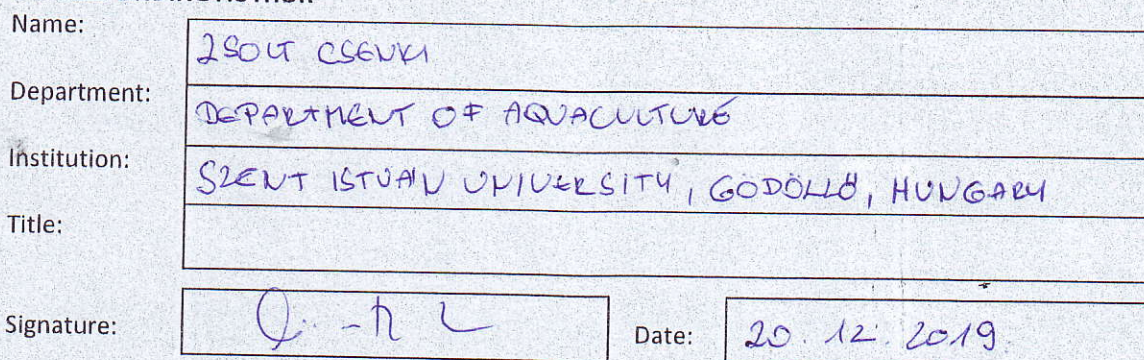 Name:
ZSOLT CSENKI
Department:
DEPARTMENT OF AQUACULTURE
Institution:
SZENT ISTVÁN UNIVERSITY, GÖDÖLLŐ, HUNGARY
Title:
Signature:
Date: 20. 12. 2019.